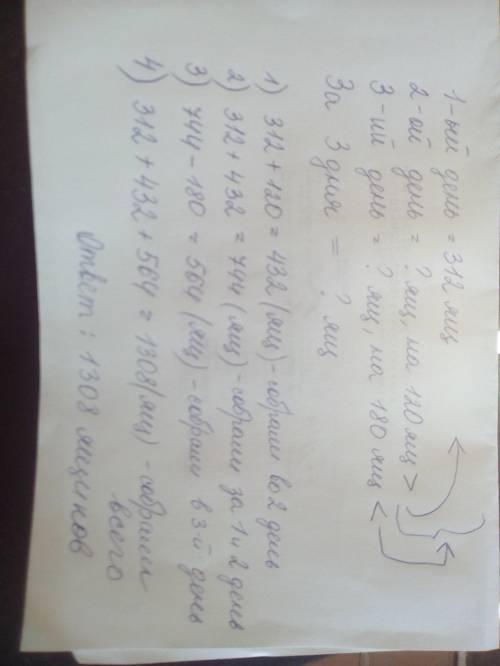 1-ый день = 312 ящ
2-ой день = ? ящ, на 120 ящ >
3-ий день = ? ящ, на 180 ящ <
За 3 дня = ? ящ
1) 312 + 120 = 432 (ящ) - собрали во 2 день
2) 312 + 432 = 744 (ящ) - собрали за 1 и 2 день
3) 744 - 180 = 564 (ящ) - собрали в 3-й день
4) 312 + 432 + 564 = 1308 (ящ) - собрали
всего
Ответ: 1308 ящиков